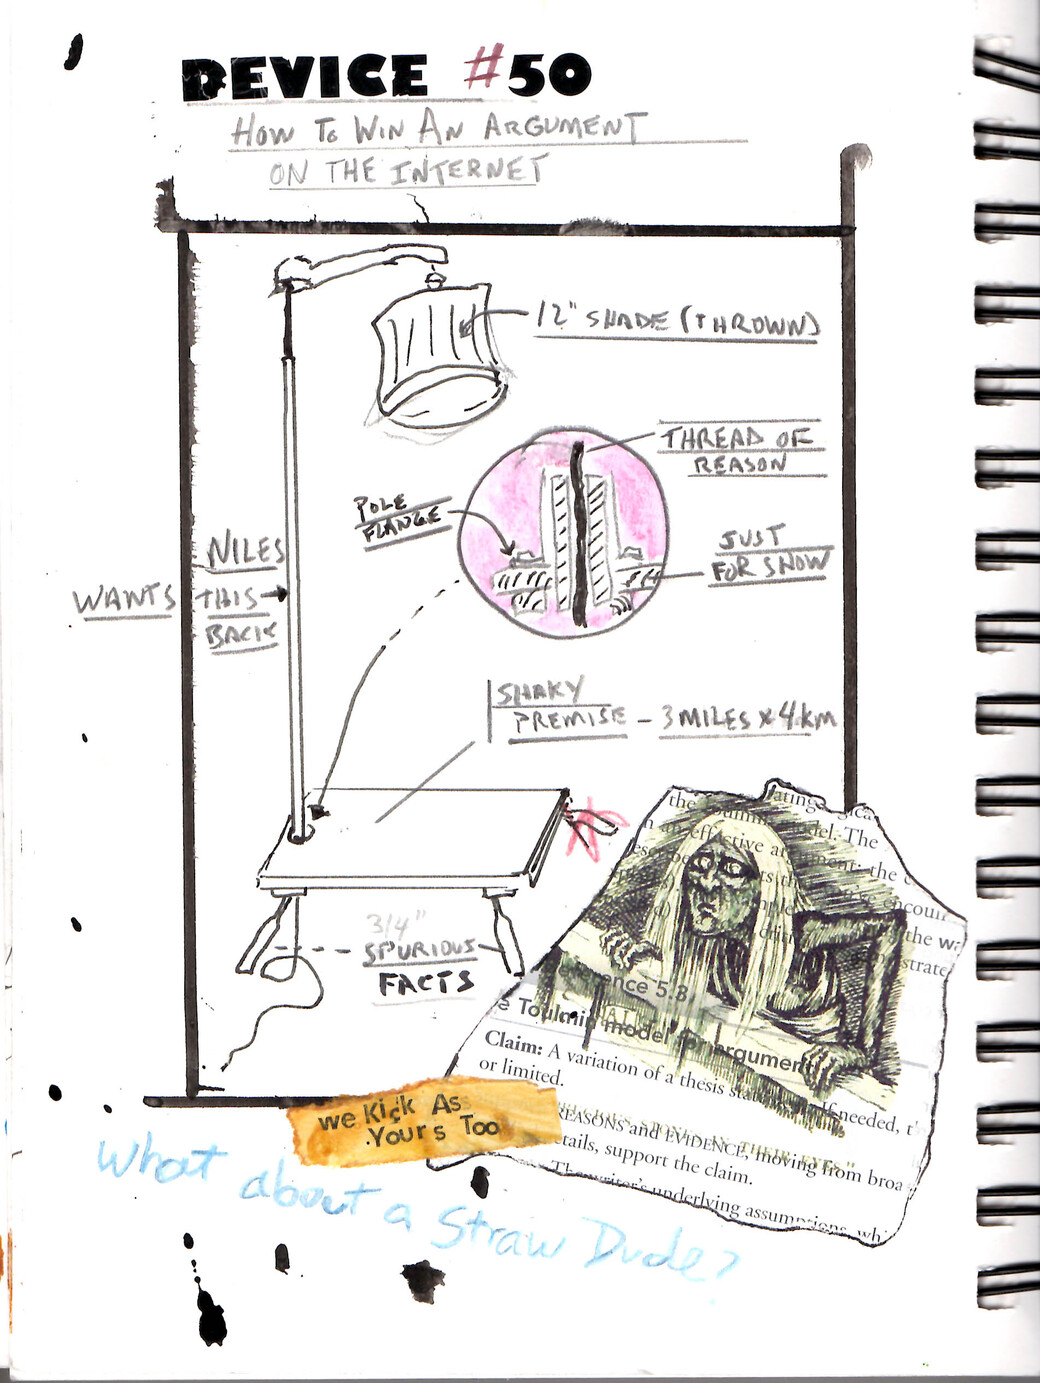 DEVICE #50
HOW TO WIN AN ARGUMENT
ON THE INTERNET
12" SHADE (THROWN)
THREAD OF
REASON
POLE
FLANGE
JUST
FOR SHOW
NILES
WANTS THIS
BACK
SHAKY
PREMISE - 3 MILES x 4 km
3/4"
SPURIOUS
FACTS
the
model. The
an effective
the
encoun
the wa
strate
5.8
Toulmin model for argument
Claim: A variation of a thesis needed,
or limited.
REASONS and EVIDENCE, moving from broa
"IN THEIR EYES"
details, support the claim.
The writer's underlying assumptions, whi
we Kick As
Yours Too
What about a Straw Dude?